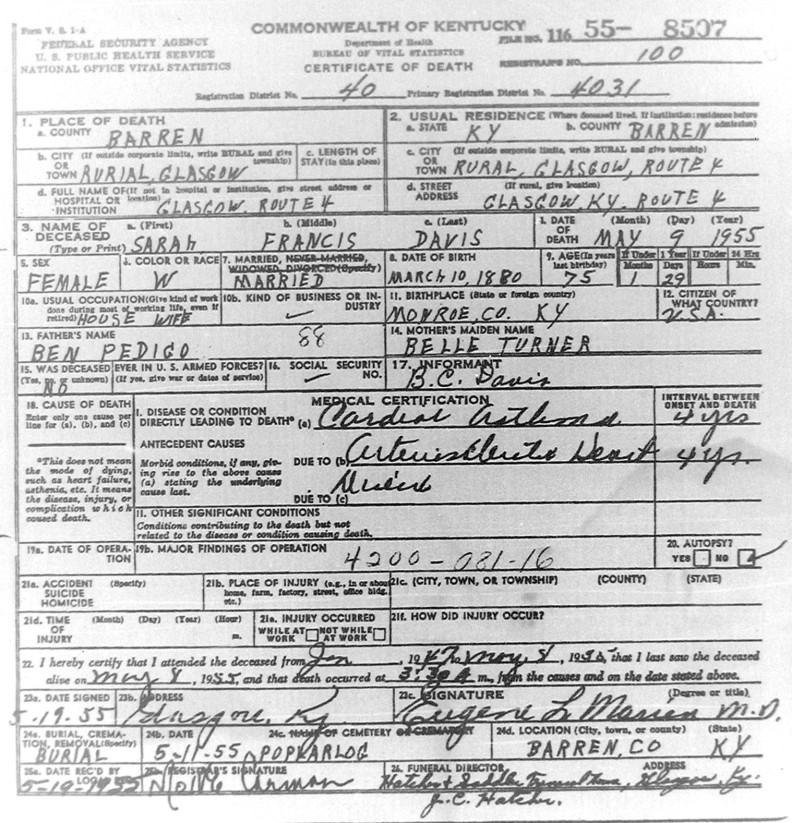 Form V. S. 1-A
COMMONWEALTH OF KENTUCKY
FILE NO. 116 55- 8507
FEDERAL SECURITY AGENCY
Department of Health
U. S. PUBLIC HEALTH SERVICE
BUREAU OF VITAL STATISTICS
REGISTRAR'S NO. 100
NATIONAL OFFICE VITAL STATISTICS
CERTIFICATE OF DEATH
Registration District No. 40 Primary Registration District No. 4031
1. PLACE OF DEATH
a. COUNTY BARREN
2. USUAL RESIDENCE (Where deceased lived. If institution: residence before admission)
a. STATE KY b. COUNTY BARREN
b. CITY (If outside corporate limits, write RURAL and give township) OR TOWN RURIAL, GLASGOW
c. LENGTH OF STAY (in this place)
c. CITY (If outside corporate limits, write RURAL and give township) OR TOWN RURAL, GLASGOW, ROUTE 4
d. FULL NAME OF (If not in hospital or institution, give street address or location) HOSPITAL OR INSTITUTION GLASGOW. ROUTE 4
d. STREET ADDRESS (If rural, give location) GLASGOW. KY. ROUTE 4
3. NAME OF DECEASED (Type or Print)
a. (First) SARAH
b. (Middle) FRANCIS
c. (Last) DAVIS
DATE OF DEATH (Month) (Day) (Year) MAY 9 1955
5. SEX FEMALE
COLOR OR RACE W
7. MARRIED, NEVER MARRIED, WIDOWED, DIVORCED (Specify) MARRIED
8. DATE OF BIRTH MARCH 10, 1880
9. AGE (In years last birthday) 75
If Under 1 Year Months 1 Days 29
If Under 24 Hrs Hours Min.
10a. USUAL OCCUPATION (Give kind of work done during most of working life, even if retired) HOUSE WIFE
10b. KIND OF BUSINESS OR INDUSTRY
11. BIRTHPLACE (State or foreign country) MONROE, CO. KY
12. CITIZEN OF WHAT COUNTRY? U.S.A.
13. FATHER'S NAME
BEN PEDIGO
88
14. MOTHER'S MAIDEN NAME
BELLE TURNER
15. WAS DECEASED EVER IN U. S. ARMED FORCES?
(Yes, no unknown) (If yes, give war or dates of service) NO
16. SOCIAL SECURITY NO.
17. INFORMANT
B.C. Davis
18. CAUSE OF DEATH
Enter only one cause per line for (a), (b), and (c)
MEDICAL CERTIFICATION
INTERVAL BETWEEN ONSET AND DEATH
I. DISEASE OR CONDITION DIRECTLY LEADING TO DEATH* (a) Cardiac Asthma 4 yrs
*This does not mean the mode of dying, such as heart failure, asthenia, etc. It means the disease, injury, or complication which caused death.
ANTECEDENT CAUSES
Morbid conditions, if any, giving rise to the above cause (a) stating the underlying cause last.
DUE TO (b) Heart 4 yr.
DUE TO (c)
II. OTHER SIGNIFICANT CONDITIONS
Conditions contributing to the death but not related to the disease or condition causing death.
19a. DATE OF OPERATION
19b. MAJOR FINDINGS OF OPERATION
4200-081-16
20. AUTOPSY?
YES NO
21a. ACCIDENT SUICIDE HOMICIDE (Specify)
21b. PLACE OF INJURY (e.g., in or about home, farm, factory, street, office bldg. etc.)
21c. (CITY, TOWN, OR TOWNSHIP) (COUNTY) (STATE)
21d. TIME OF INJURY (Month) (Day) (Year) (Hour) m.
21e. INJURY OCCURRED WHILE AT WORK NOT WHILE AT WORK
21f. HOW DID INJURY OCCUR?
22. I hereby certify that I attended the deceased from Jan, 19 to May 8, 1955, that I last saw the deceased
alive on May 8, 1955 and that death occurred at 3:30 A m., from the causes and on the date stated above.
23a. DATE SIGNED 5-19-55
23b. ADDRESS Glasgow, Ky
23c. SIGNATURE (Degree or title) Eugene L. Marion M.D.
24a. BURIAL, CREMATION, REMOVAL (Specify) BURIAL
24b. DATE 5-11-55
24c. NAME OF CEMETERY OR CREMATORY POPLARLOG
24d. LOCATION (City, town, or county) (State) BARREN, CO KY
25a. DATE REC'D BY LOCAL REG. 5-19-1955
25b. REGISTRAR'S SIGNATURE
26. FUNERAL DIRECTOR ADDRESS
Hatcher & Saddler Funeral Home, Glasgow, Ky.
J.C. Hatcher.